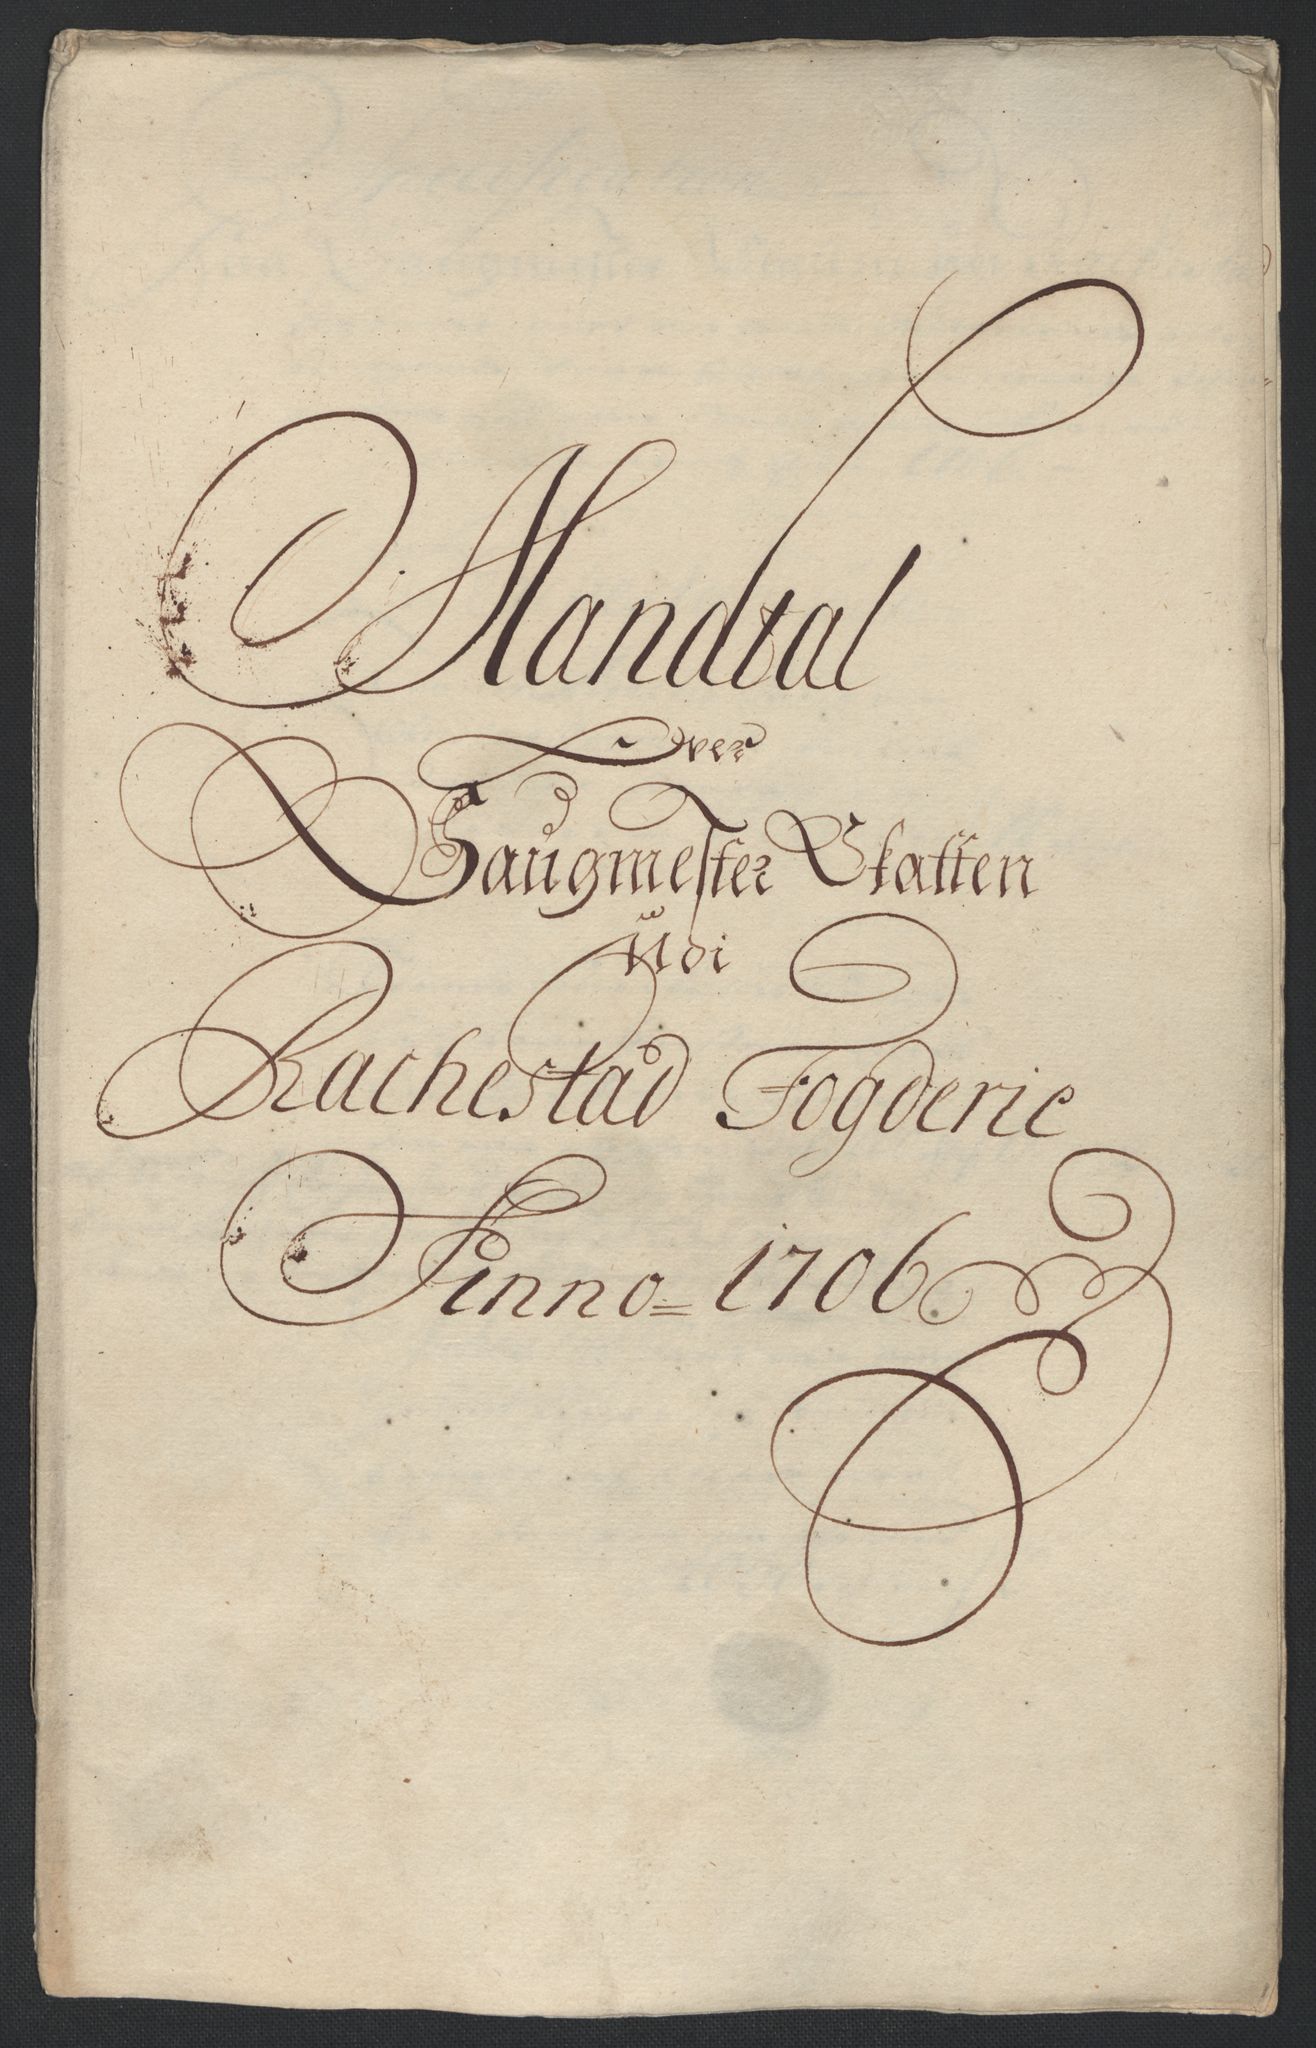 Mandtal
Over
Saugmester Skatten
Udi
Rachestad Fogderie
Anno= 1706